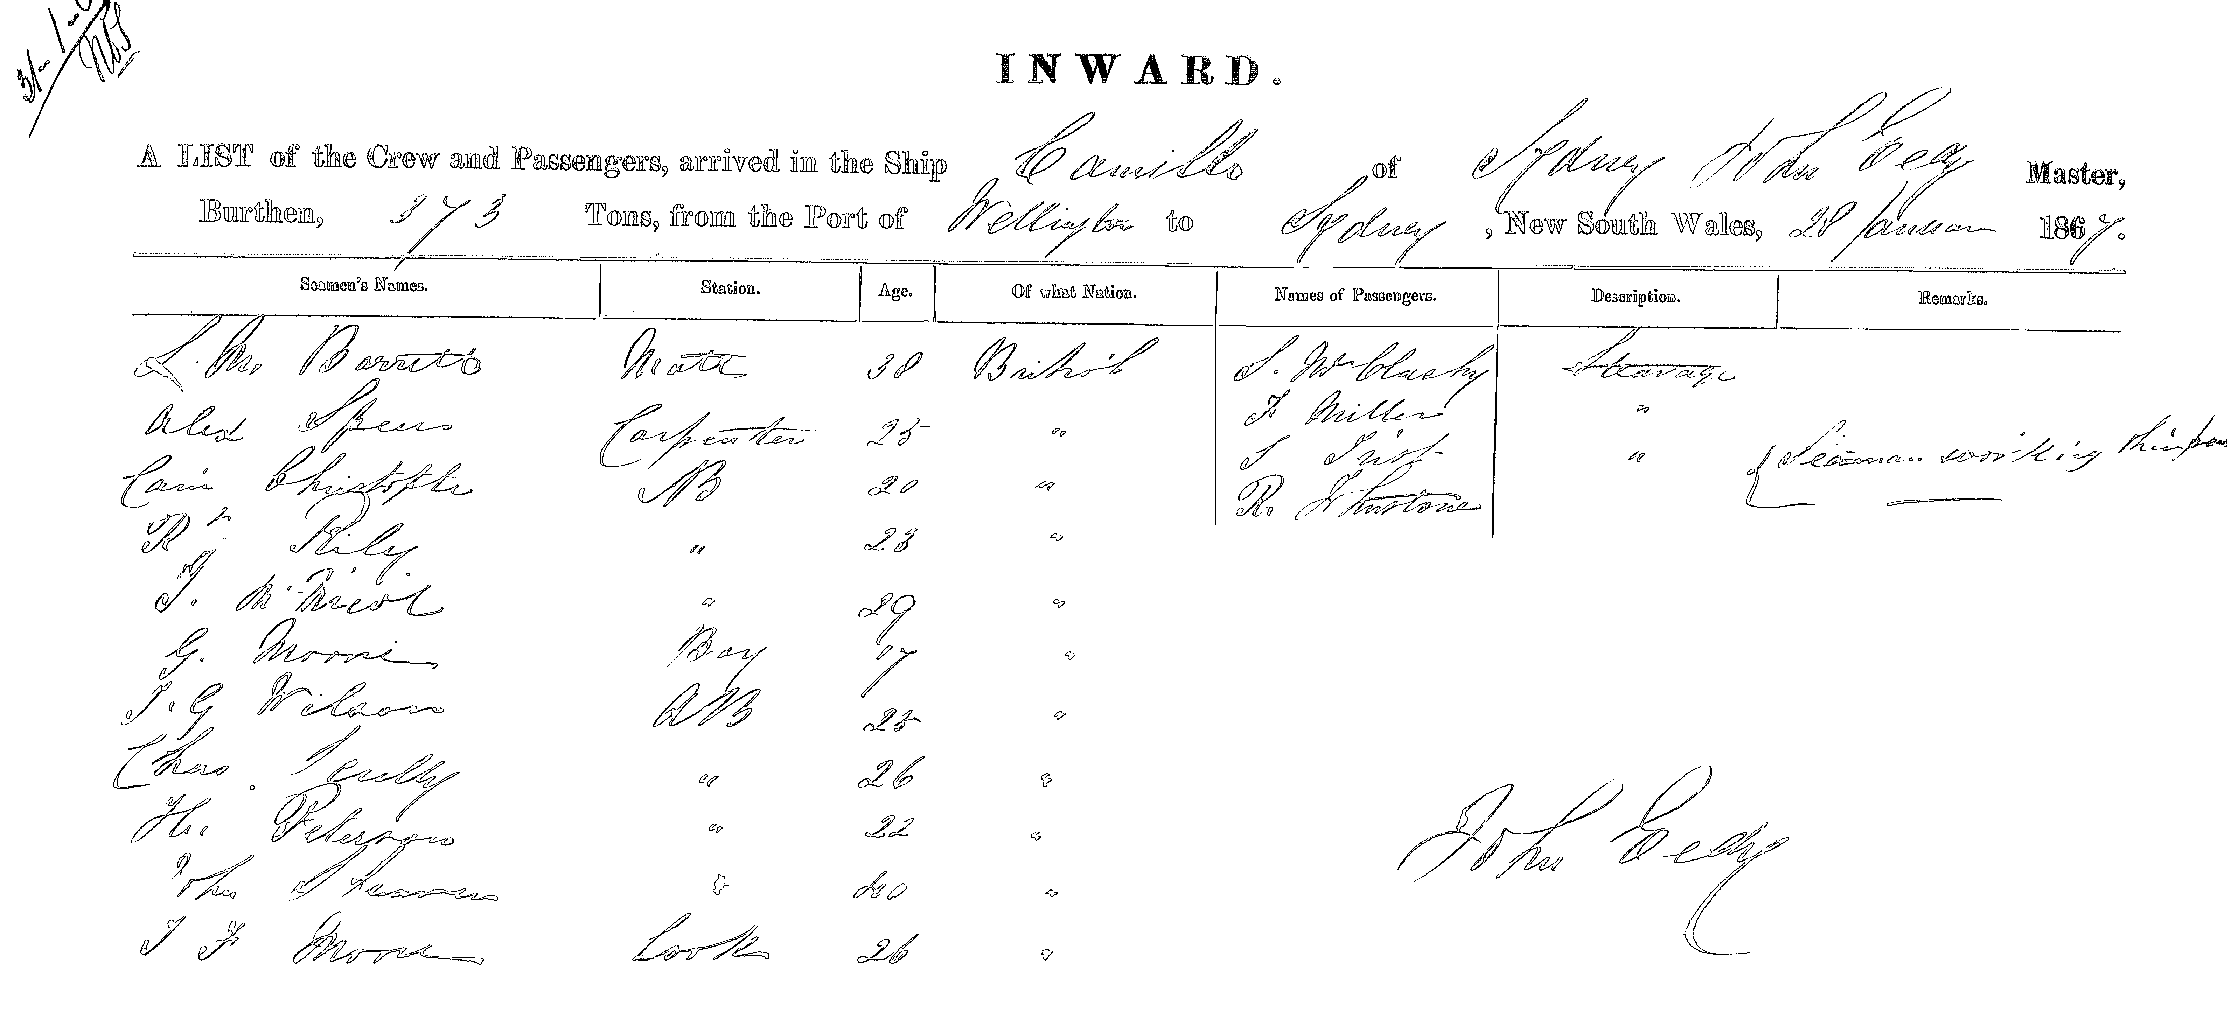 31-1-6
INWARD.
A LIST of the Crew and Passengers, arrived in the Ship Camilla of Sydney John Eedy Master,
Burthen, 373 Tons, from the Port of Wellington to Sydney, New South Wales, 28 January 1867.
Seamen's Names. Station. Age. Of what Nation. Names of Passengers. Description. Remarks.
L. M. Barrett Mate 38 British S. McClashy Steavage
Alex Speers Carpenter 25 " F Miller "
Cain Christoffer AB 20 " S " { Seaman working
Rd Rily " 23 " R. Johnstone
J. " 29 "
G. Moore Boy 17 "
J. G Wilson AB 25 "
Chas. " 26 "
Hr. Peterson " 22 "
John " 40 "
J F Moore Cook 26 "
John Eedy